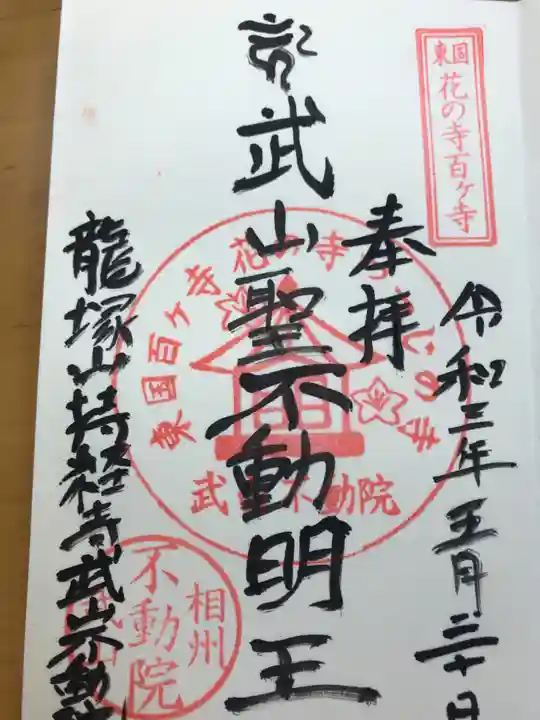 東国花の寺百ヶ寺
令和三年五月三十日
奉拝
武山聖不動明王
龍塚山持経寺武山不動院
東国百ヶ寺 花の寺 つつじの寺
武山不動院
相州
不動院
武山